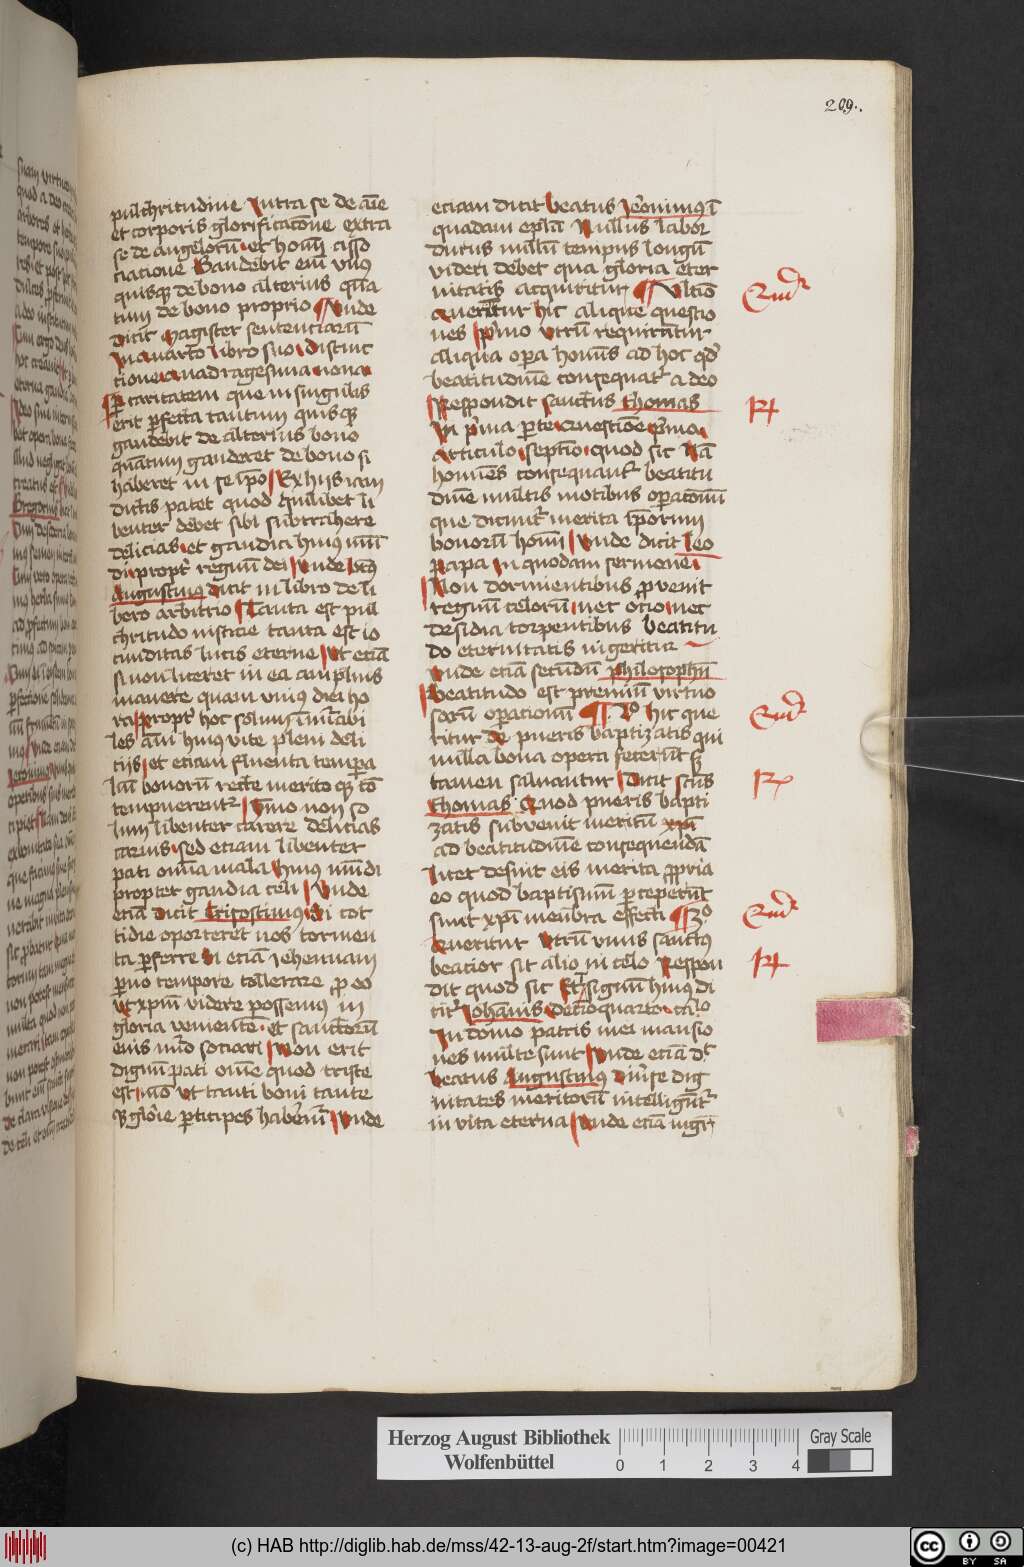 209.
pulchritudine Intra se de aīe
et corporis glorificatōne extra
se de angelorū et homī asso
ciatione Gaudebit eni vnus
quisqꝫ de bono alterius quā
tum de bono proprio Unde
dicit Magister sententiarū
In quarto libro suo distinc
tione quadragesima nona
Per caritatem que in singulis
erit pfecta tantum quisqꝫ
gaudebit de alterius bono
quātum gauderet de bono si
haberet in se ipo Ex hiis iam
dictis patet quod quilibet li
benter debet sibi subtrahere
delicias et gaudia huius mūi
di propt regnū dei Unde btūs
Augustinus dicit in libro de li
bero arbitrio Tanta est pul
chritudo iusticie tanta est io
cunditas lucis eterne ut etiā
si non liceret in ea amplius
manere quam vnius diei ho
ra propt hoc solum īnūabi
les āni huius vite pleni deli
tiis et etiam fluenta tempa
liū bonorū recte merito qꝫ cō
tempnerent Ymmo non so
lum libenter carere delicias
carnis sed etiam libenter
pati omīa mala huius mūdi
propter gaudia celi Unde
etiā dicit Crisostimus Si cot
tidie oporteret nos tormen
ta pferre Si etiā Jehennam
puo tempore tollerare p eo
ut xpm videre possemus in
gloria veniente et sanctorū
eius nūo sociari Non erit
dignū pati omē quod triste
est imō ut tanti boni tante
qꝫ glorie pticipes habemᷓ Unde
etiam dicit beatus Jeronimus ī
quadam eplā Nullus labor
durus nullū tempus longū
videri debet qua gloria eter
nitatis acquiritur Ultīo
Queritur hic alique questio
nes Pmo utrū requirantur
aliqua opa hominis ad hoc qd
beatitudinē consequatr a deo
Respondit sanctus thomas
In pma parte questione pmo
articulo septīo quod sic Nā
homines consequantr beatitu
dinē multis motibus opationū
que dicuntr merita ipsorum
bonorū homī Unde dicit Leo
Papa In quodam sermone
Non dormientibus pvenit
regnū celorū nec ocio nec
desidia torpentibus beatitu
do eternitatis ingeritur
Unde etiā secundū philosophū
beatitudo est premiū virtuo
sorū operationū 2º hic que
ritur de pueris baptizatis qui
nulla bona opera fecerūt sꝫ
tamen saluantur Dicit sctus
thomas Quod pueris bapti
zatis subvenit meritū xpi
ad beatitudinē consequendā
licet desint eis merita ppria
eo quod baptismū pceperūt
sunt xpi membra effecti 3º
Queritur Utrū vnus sanctus
beatior sit alio in celo Respon
dit quod sic Et signū huius di
citr Johānis Decīoquarto caᵒ
In domo patris mei mansio
nes multe sunt Unde etiā dt
beatus Augustinus Diuse dig
nitates meritorū intelligūtr
in vita eterna Unde etiā nigr
Herzog August Bibliothek
Wolfenbüttel
0 1 2 3 4
Gray Scale
(c) HAB http://diglib.hab.de/mss/42-13-aug-2f/start.htm?image=00421
cc BY SA